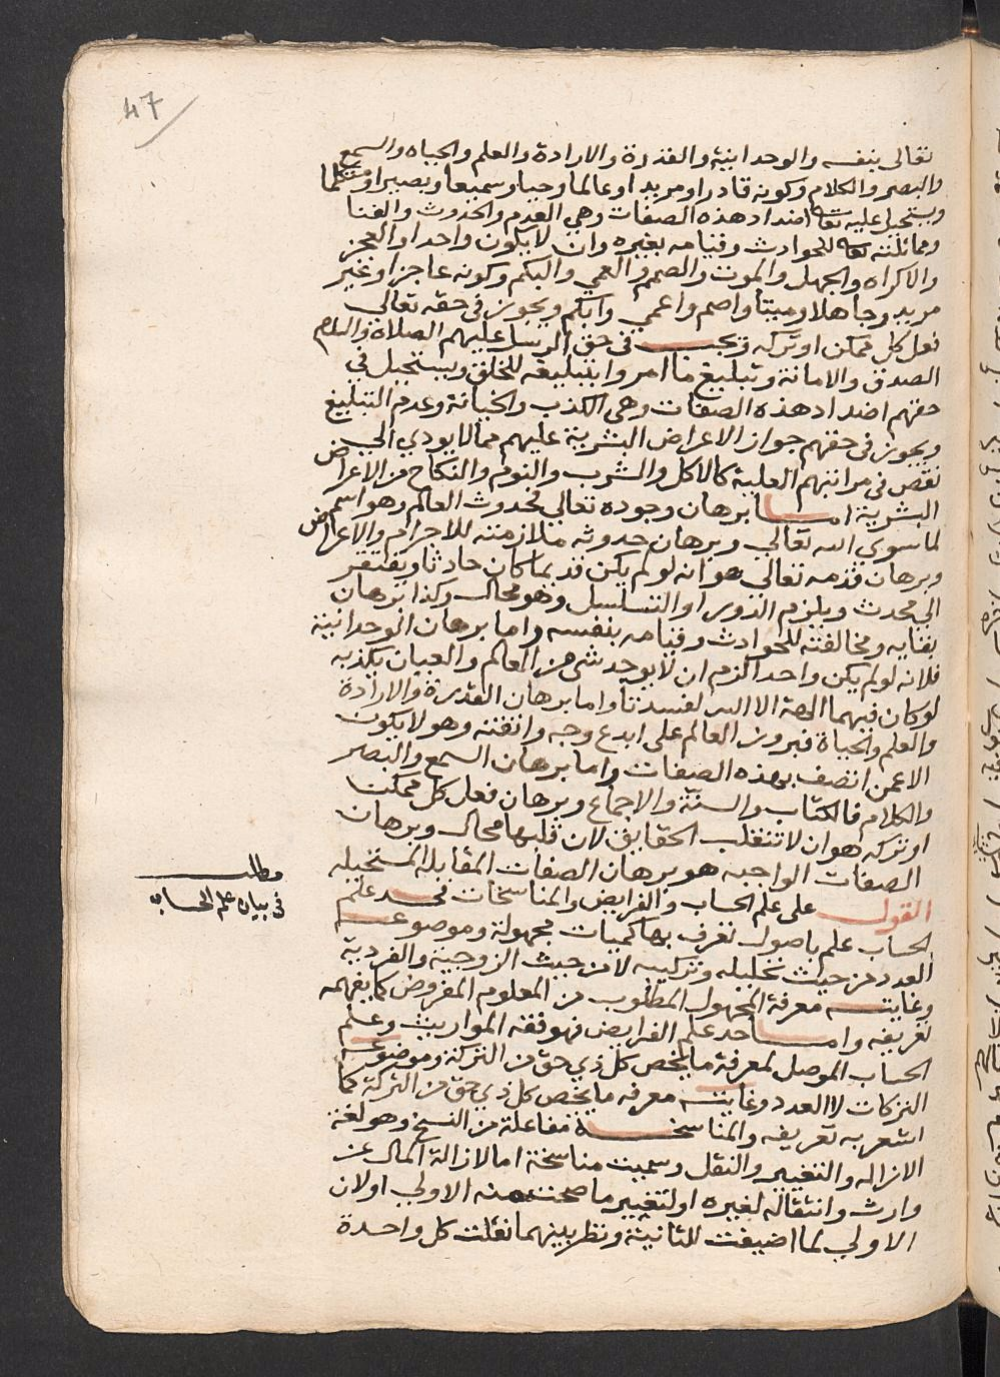 47
تعالى بنفسه والوحدانية والقدرة والارادة والعلم والحياه والسمع
والبصر والكلام وكونه قادرا ومريدا وعالما وحيا وسميعا وبصيرا ومتكلما
ويستحيل عليه تعالى اضداد هذه الصفات وهي العدم والحدوث والفنا
ومماثلته تعالى للحوادث وقيامه بغيره وان لا يكون واحدا والعجز
والاكراه والجهل والموت والصمم والعمي والبكم وكونه عاجزا وغير
مريد وجاهلا وميتا واصم واعمي وابكم ويجوز في حقه تعالى
فعل كل ممكن او تركه ويجب في حق الرسل عليهم الصلاة والسلام
الصدق والامانة وتبليغ ما امروا بتبليغه للخلق ويستحيل في
حقهم اضداد هذه الصفات وهي الكذب والخيانة وعدم التبليغ
ويجوز في حقهم جواز الاعراض البشرية عليهم مما لا يودي الي
نقص في مراتبهم العلية كالاكل والشرب والنوم والنكاح من الاعراض
البشرية اما برهان وجوده تعالى فحدوث العالم وهو اسم
لما سوي الله تعالى وبرهان حدوثه ملازمته للاجرام والاعراض
وبرهان قدمه تعالى هو انه لو لم يكن قديما كان حادثا ويفتقر
الي محدث ويلزم الدور او التسلسل وهو محال وكذا برهان
بقايه ومخالفته للحوادث وقيامه بنفسه واما برهان الوحدانية
فلانه لو لم يكن واحدا لزم ان لا يوجد شي من العالم والعيان يكذبه
لو كان فيهما الهة الا الله لفسدتا واما برهان القدرة والارادة
والعلم والحياة فبروز العالم على ابدع وجه واتقنه وهو لا يكون
الا عمن اتصف بهذه الصفات واما برهان السمع والبصر
والكلام فالكتاب والسنة والاجماع وبرهان فعل كل ممكن
او تركه هو ان لا تنقلب الحقايق لان قلبها محال وبرهان
الصفات الواجبه هو برهان الصفات المقابله المستحيله
القول على علم الحساب والفرايض والمناسخات فحد علم
الحساب علم باصول تعرف بها كميات مجهولة وموضوعه
العدد من حيث تحليله وتركيبه لا من حيث الزوجية والفردية
وغايته معرفة المجهول المطلوب من المعلوم المفروض كما يفهمه
تعريفه واما حد علم الفرايض فهو فقه المواريث وعلم
الحساب الموصل لمعرفة ما يخص كل ذي حق من التركة وموضوعه
التركات لا العدد وغايته معرفه ما يخص كل ذي حق من التركة كما
اشعر به تعريفه والمناسخة مفاعلة من النسخ وهو لغة
الازاله والتغيير والنقل وسميت مناسخة اما لازالة المال عن
وارث وانتقاله لغيره او لتغيير ما صحت منه الاولي او لان
الاولي لما اضيفت للثانية ونظر بينهما نقلت كل واحدة
مطلب
في بيان علم الحساب